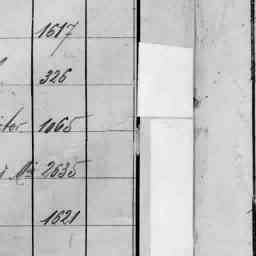 1617
326
1065
2635
1621